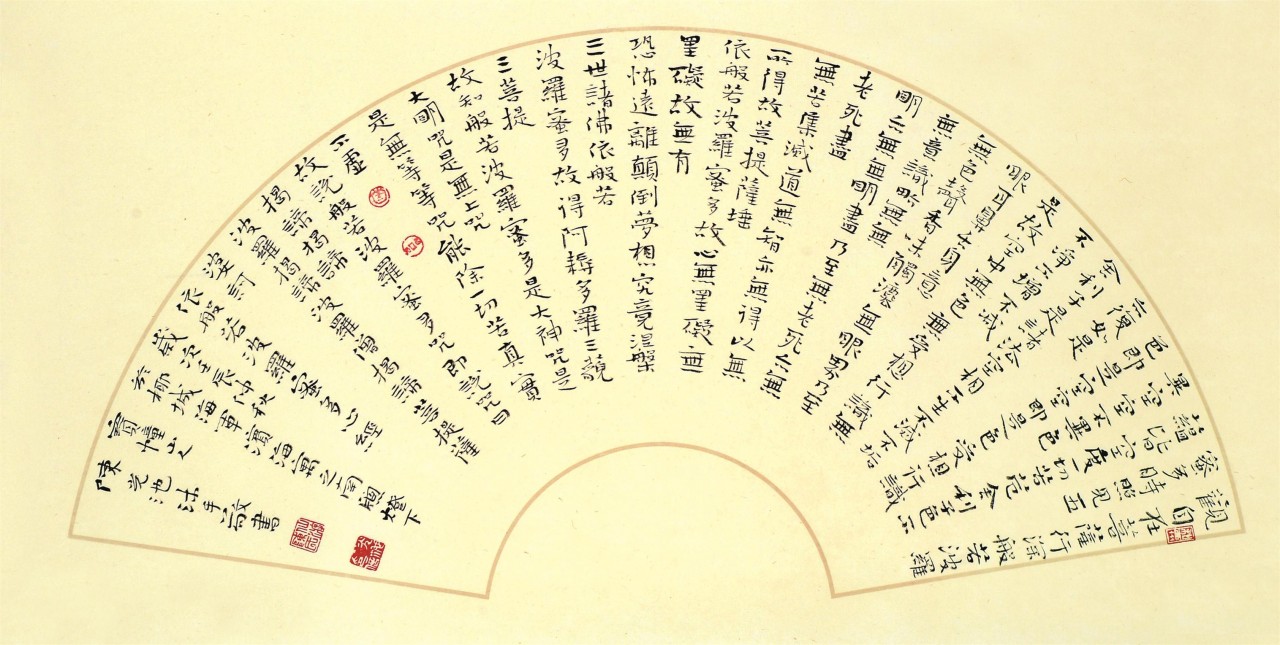 觀自在菩薩行深般若波羅
蜜多時照見五
蘊皆空度一切苦厄舍利子色不
異空空不異色
色即是空空即是色受想行識
亦復如是
舍利子是諸法空相不生不滅不垢
不淨不增不減
是故空中無色無受想行識無
眼耳鼻舌身意
無色聲香味觸法無眼界乃至
無意識界無無
明亦無無明盡乃至無老死亦無
老死盡
無苦集滅道無智亦無得以無
所得故菩提薩埵
依般若波羅蜜多故心無罣礙無
罣礙故無有
恐怖遠離顛倒夢想究竟涅槃
三世諸佛依般若
波羅蜜多故得阿耨多羅三藐
三菩提
故知般若波羅蜜多是大神咒是
大明咒是無上咒
是無等等咒能除一切苦真實
不虛
故說般若波羅蜜多咒即說咒曰
揭諦揭諦
波羅揭諦波羅僧揭諦菩提薩
婆訶
依般若波羅蜜多心經
歲次壬辰仲秋
於椰城海軍賓海寓之南窗燈下
寶幢
陳沐手敬書